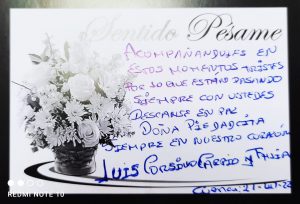 Sentido Pésame
ACOMPAÑANDOLES EN
ESTOS MOMENTOS TRISTES
POR LO QUE ESTÁN PASANDO
SIEMPRE CON USTEDES
DESCANSE EN PAZ
DOÑA PIEDADCITA
SIEMPRE EN NUESTRO CORAZÓN
LUIS CORSINO CARPIO Y FMLIA
Cuenca
REDMI NOTE 10